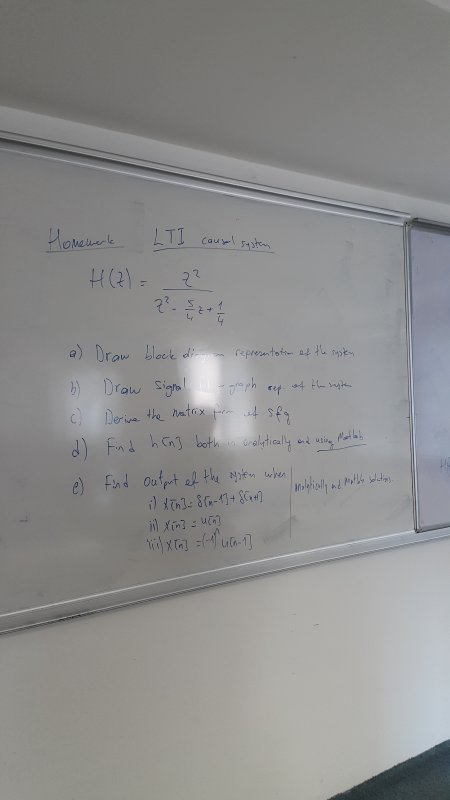 Homework LTI causal system
H(z) = z² / (z² - 5/4 z + 1/4)
a) Draw block diagram representation of the system
b) Draw signal graph rep of the system
c) Derive the matrix form of sfg
d) Find h[n] both analytically and using Matlab
e) Find output of the system when analytically and Matlab solutions.
i) x[n] = δ[n-1] + δ[n+1]
ii) x[n] = u[n]
iii) x[n] = (-1)ⁿ u[n-1]